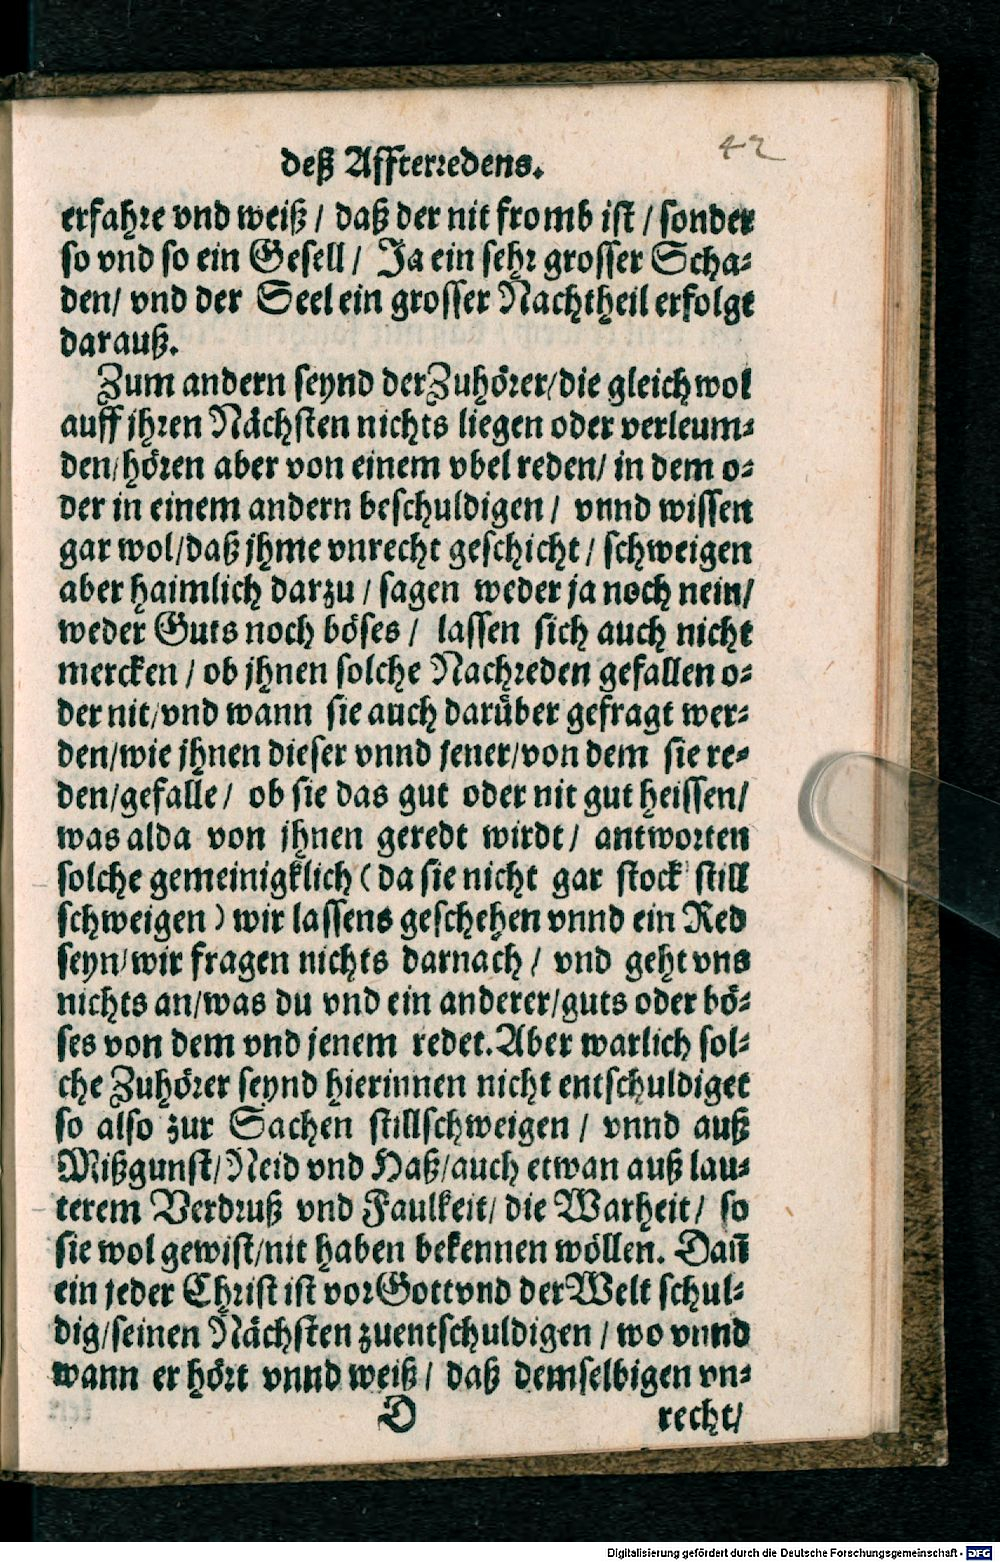 deß Affterredens.
42
erfahre vnd weiß / daß der nit fromb ist / sonder
so vnd so ein Gesell / Ja ein sehr grosser Scha⸗
den / vnd der Seel ein grosser Nachtheil erfolgt
darauß.
Zum andern seynd der Zuhörer / die gleichwol
auff jhren Nächsten nichts liegen oder verleum⸗
den / hören aber von einem vbel reden / in dem o⸗
der in einem andern beschuldigen / vnnd wissen
gar wol / daß jhme vnrecht geschicht / schweigen
aber haimlich darzu / sagen weder ja noch nein /
weder Guts noch böses / lassen sich auch nicht
mercken / ob jhnen solche Nachreden gefallen o⸗
der nit / vnd wann sie auch darüber gefragt wer⸗
den / wie jhnen dieser vnnd jener / von dem sie re⸗
den / gefalle / ob sie das gut oder nit gut heissen /
was alda von jhnen geredt wirdt / antworten
solche gemeinigklich ( da sie nicht gar stock still
schweigen ) wir lassens geschehen vnnd ein Red
seyn / wir fragen nichts darnach / vnd geht vns
nichts an / was du vnd ein anderer / guts oder bö⸗
ses von dem vnd jenem redet. Aber warlich sol⸗
che Zuhörer seynd hierinnen nicht entschuldiget
so also zur Sachen stillschweigen / vnnd auß
Mißgunst / Neid vnd Haß / auch etwan auß lau⸗
terem Verdruß vnd Faulkeit / die Warheit / so
sie wol gewist / nit haben bekennen wöllen. Dañ
ein jeder Christ ist vor Gott vnd der Welt schul⸗
dig / seinen Nächsten zuentschuldigen / wo vnnd
wann er hört vnnd weiß / daß demselbigen vn⸗
D recht /
Digitalisierung gefördert durch die Deutsche Forschungsgemeinschaft - DFG